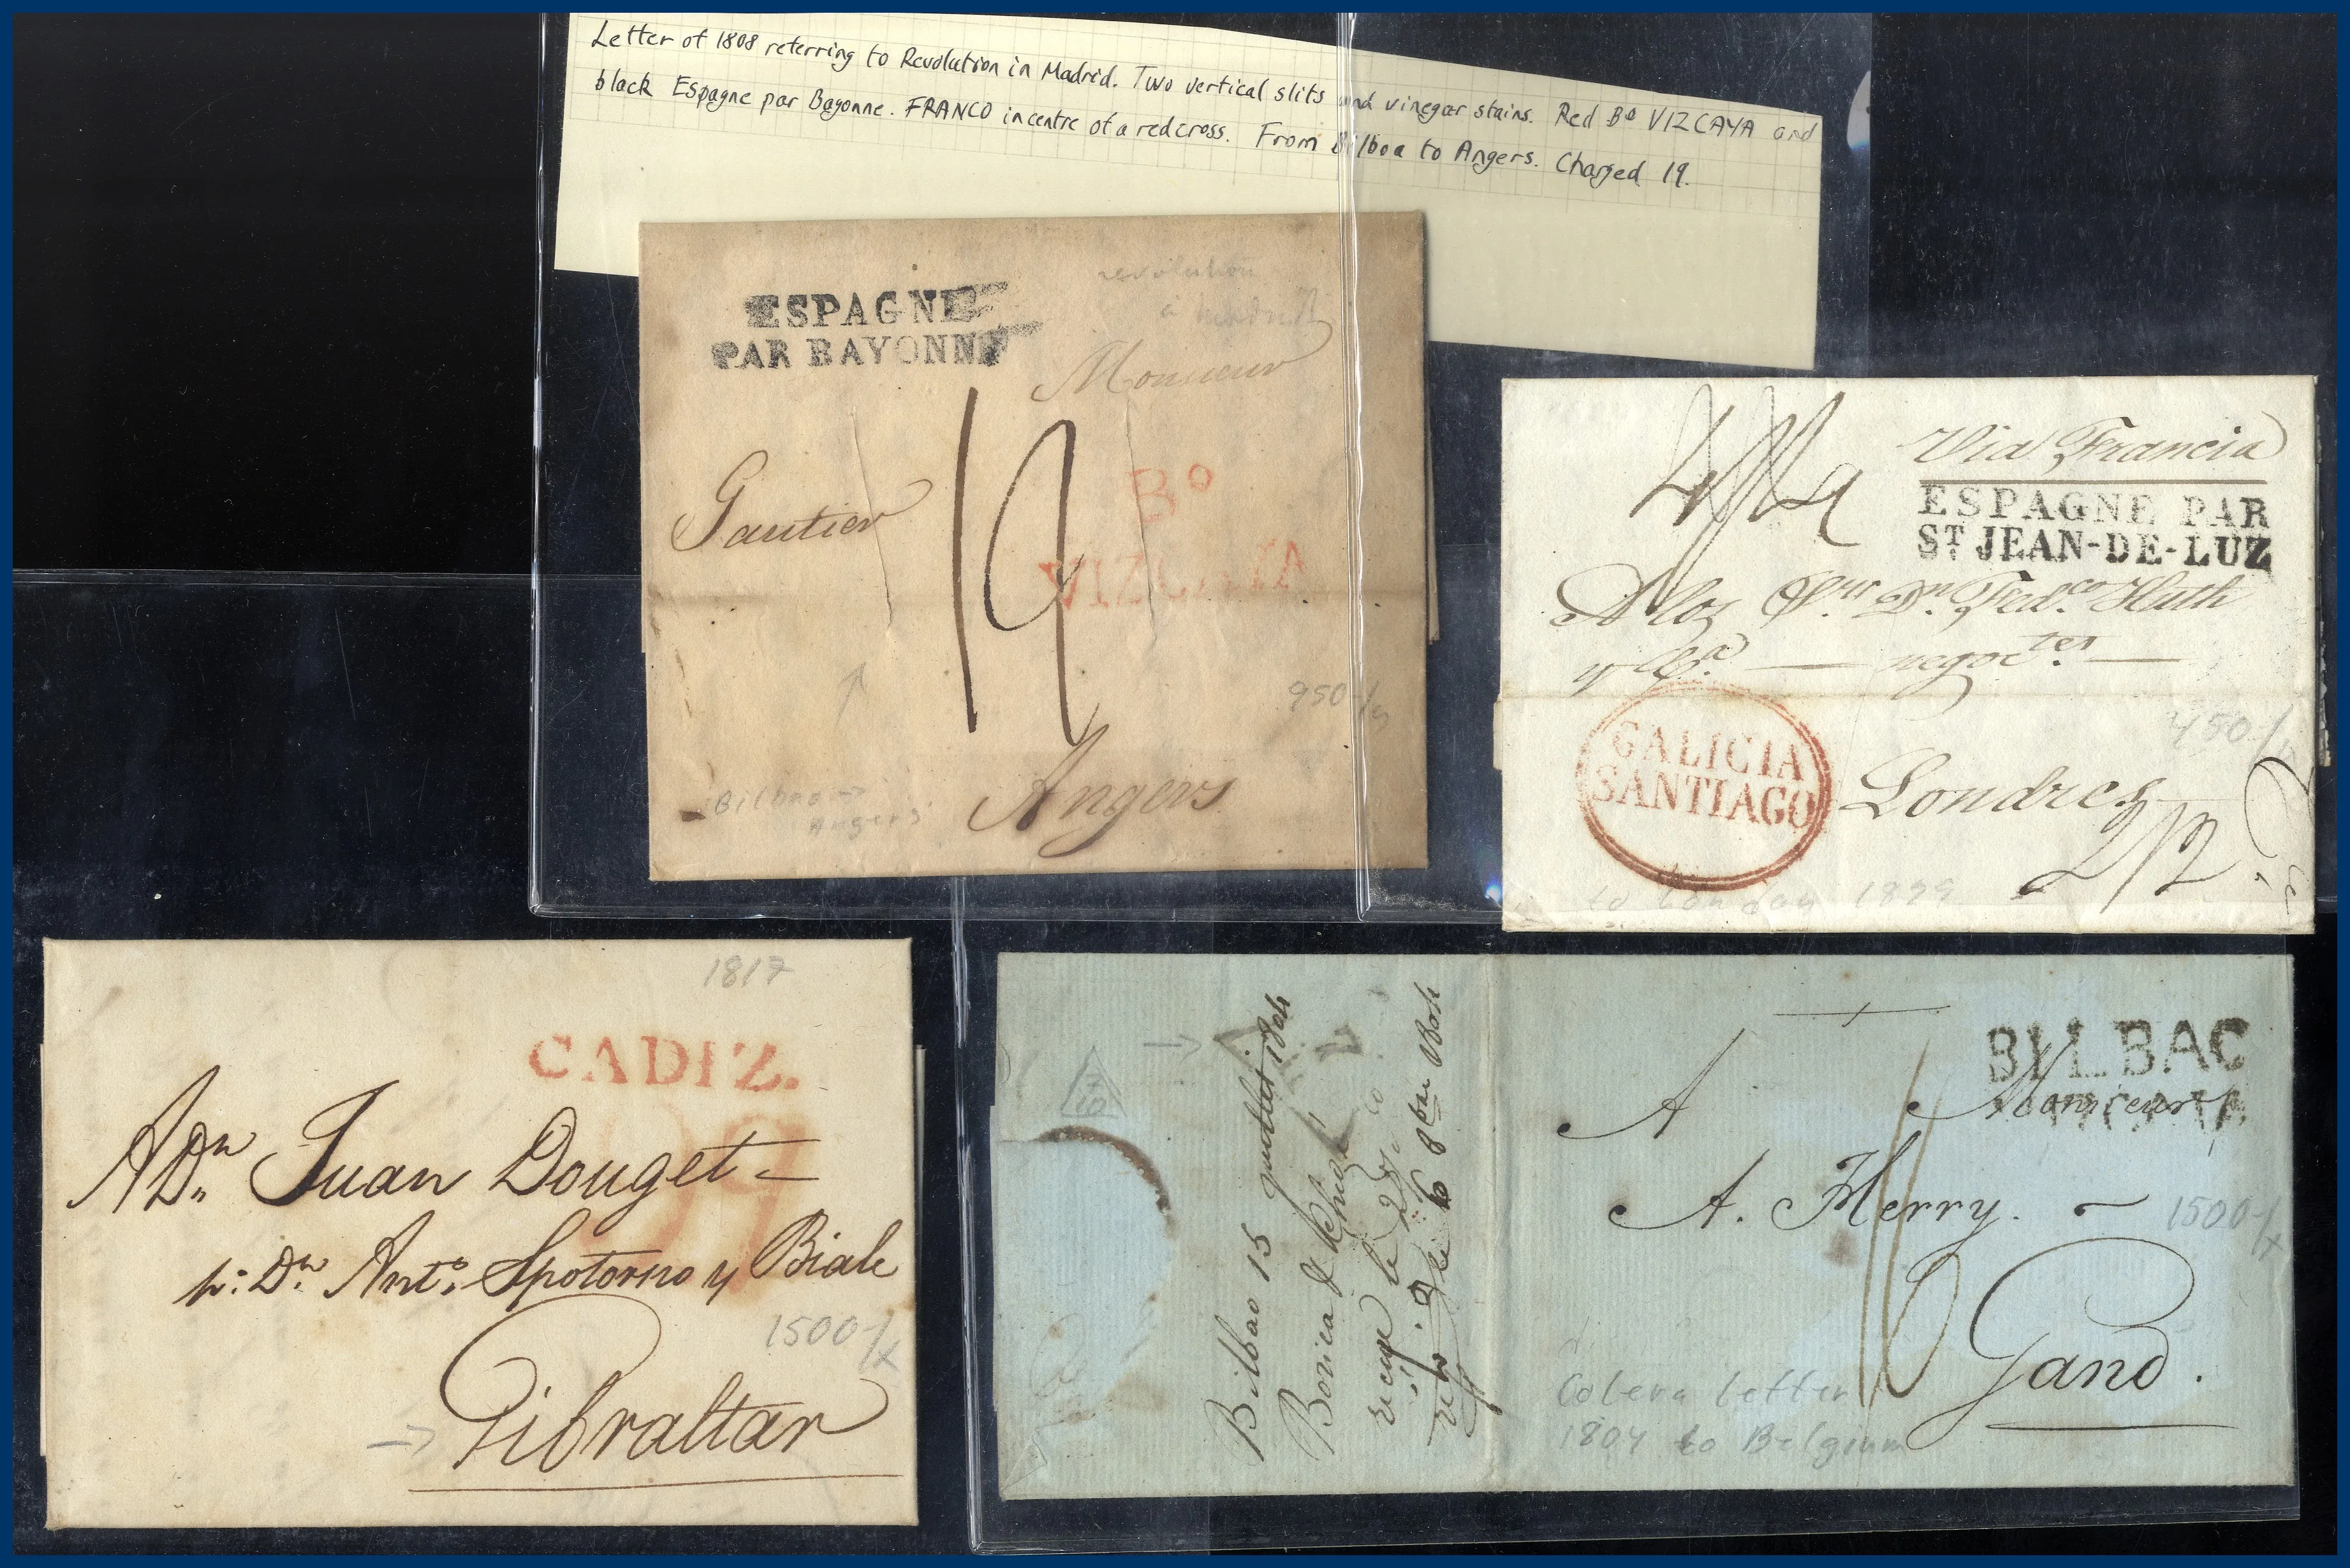 Letter of 1808 referring to Revolution in Madrid. Two vertical slits and vinegar stains. Red Bº VIZCAYA and
black Espagne par Bayonne. FRANCO in centre of a red cross. From Bilboa to Angers. Charged 19.
ESPAGNE
PAR BAYONNE
revolution
a Madrid
Monsieur
Gautier
19
Bº
VIZCAYA
950-/
Bilbao →
Angers
Angers
Via Francia
ESPAGNE PAR
ST JEAN-DE-LUZ
A los Sres Dn Fedco Huth
y Ca negoctes
450-/
GALICIA
SANTIAGO
Londres
2/2
to London
1817
CADIZ.
A Dn Juan Douget
p: Dn Anto Spotorno y Biale
1500-/x
Gibraltar
Bilbao 15 juillet 1804
reçue le 28
BILBAO
A Monsieur
A. Herry.
16
1500-/x
Gand.
Colera letter
1804 to Belgium